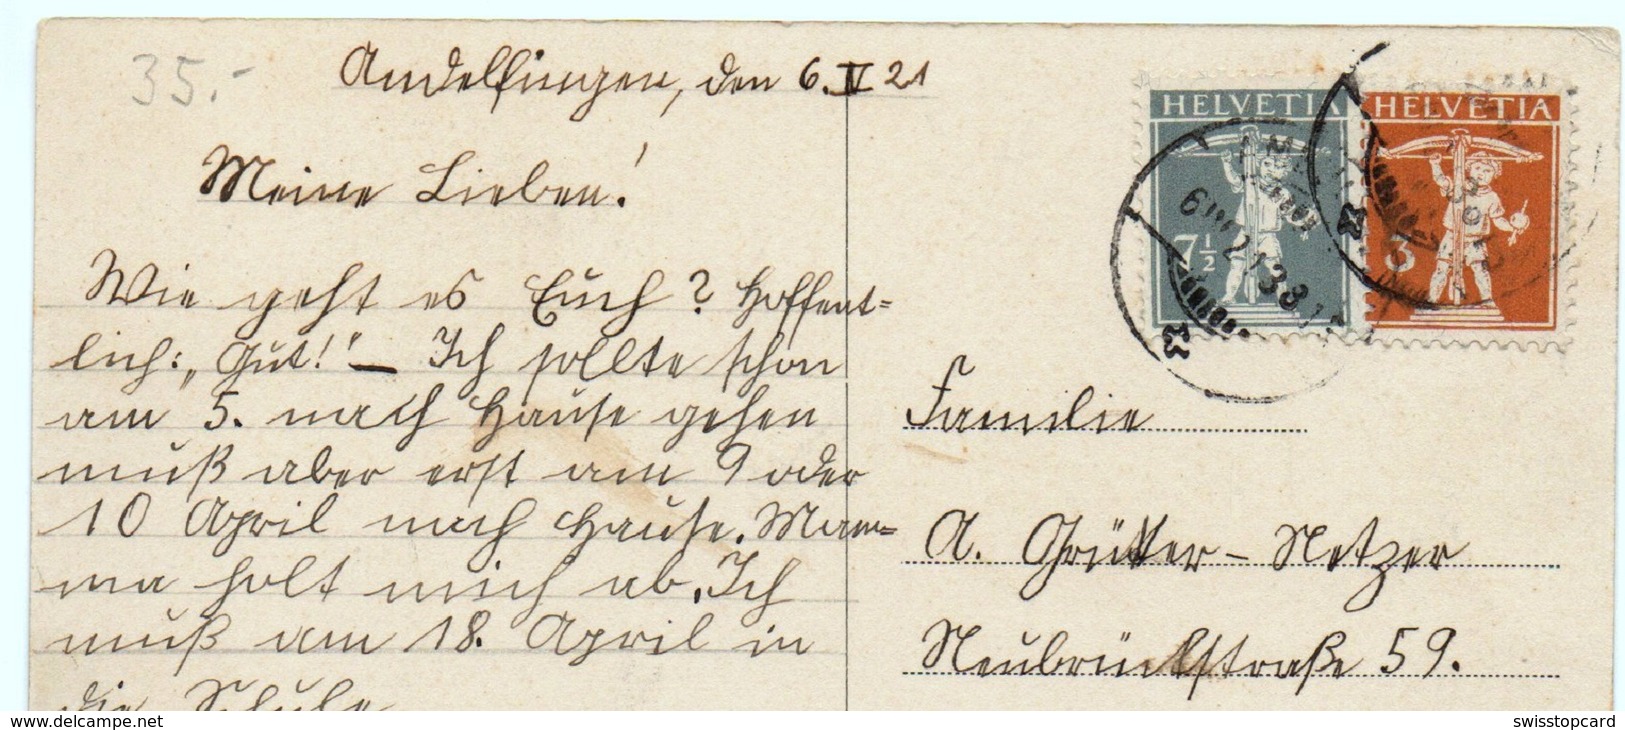 35.-
Andelfingen, den 6. IV 21
Meine Lieben!
Wie geht es Euch? Hoffent=
lich: „Gut!" – Ich sollte schon
am 5. nach Hause gehen
muß aber erst am 9 oder
10 April nach Hause. Mam=
ma holt mich ab. Ich
muß am 18. April in
die Schule
HELVETIA
7½
HELVETIA
3
Familie
A. Grütter-Netzer
Neubrückstraße 59.
www.delcampe.net
swisstopcard